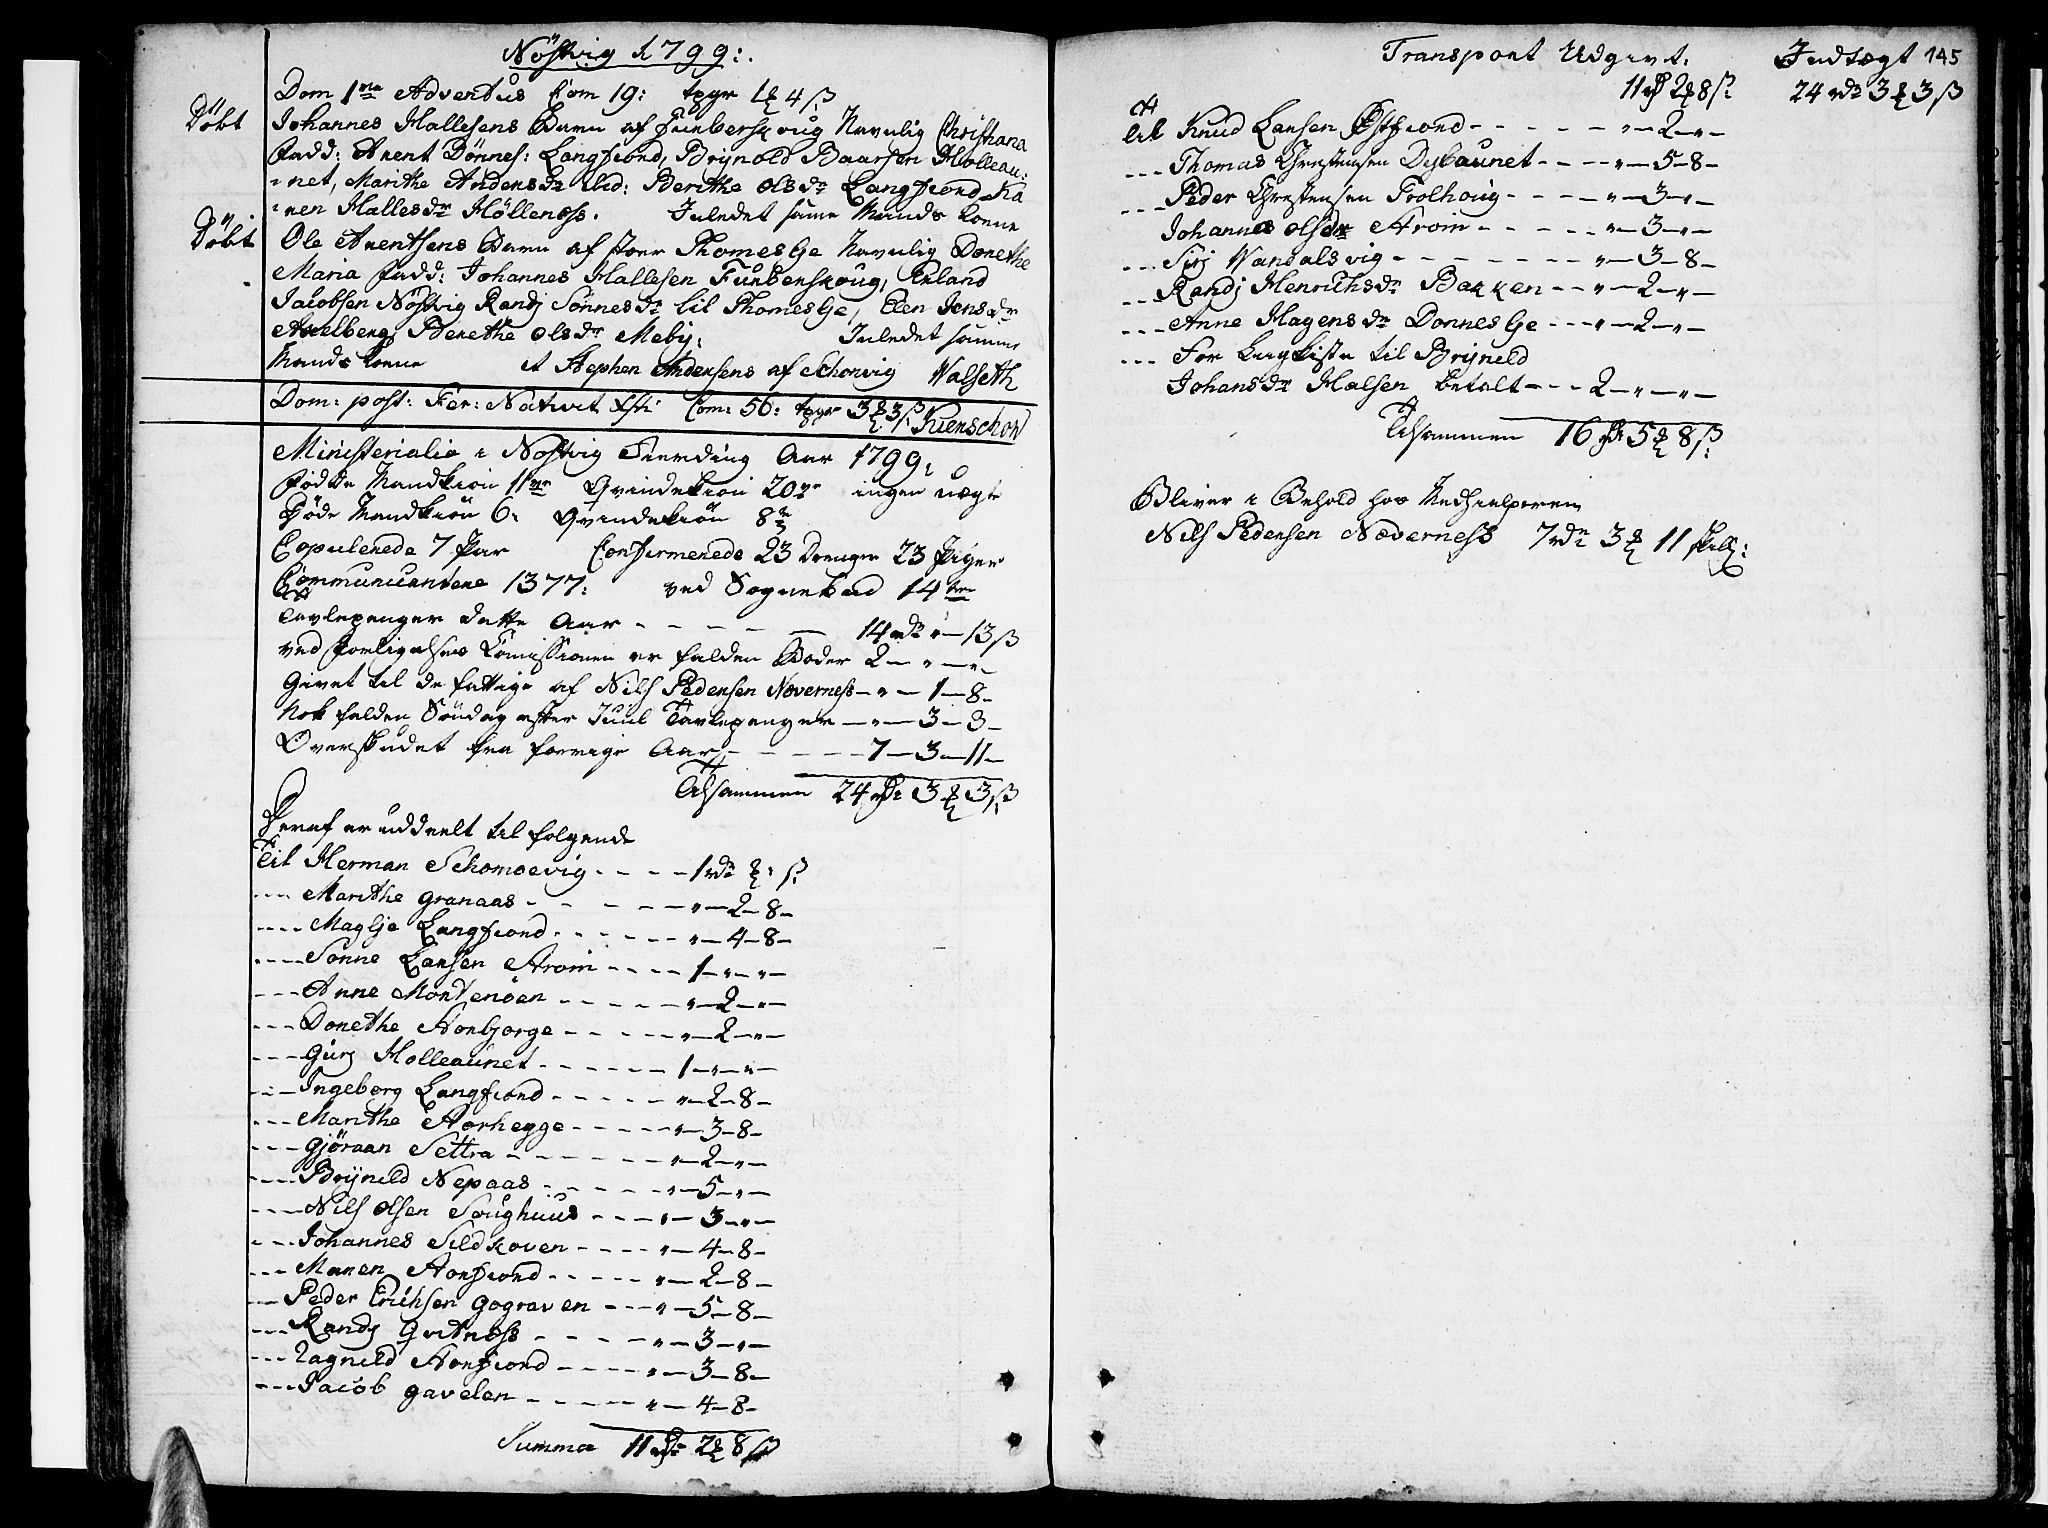 Nöstvig 1799:
Dom 1ma Adventus Com 19: tpgr 1 4 ß
Döbt Johannes Hallesens Barn af Funberskoug Navnlig Christiana
Fadd: Arent Dönnes: Langfiord, Brynold Baarsen Holleau:
net, Marithe Andersdr ibid: Berithe Olsdr Langfiord Ka
ren Hallesdr Höllenss. Inledet same Mands Kone
Döbt Ole Arentsens Barn af Thomesgie Navnlig Dorethe
Maria Fadd: Johannes Hallesen Funberskoug, Erland
Jacobsen Nöstvig Randj Sönnesdr lil Thomesgie, Elen Jensdr
Axelberg Berethe Olsdr Mebÿ: Inledet samme
Mands Kone et Stephen Andersens af Schorvig Walseth
Dom: post: Fer: Nativit Xsti Com: 56: tpgr 3 3 ß Kierschow
Ministerialia i Nöstvig Fierding Aar 1799:
Födde Mandkiön 11ve Qvindekiön 20ve ingen uægte
Döde Mandkiön 6: Qvindekiön 8te
Copulerede 7 Par Confirmerede 23 Drenge 23 Piger
Communicantere 1377: ved Sognebud 14ten
Tavlepenger dette Aar - - - 14 rdr " 13 ß
ved Forligelses Comissionen er falden Böder 2 - " - " -
Givet til de fattige af Nils Pedersen Neverness - " - 1 - 8 -
Nok falden Söndag efter Juul Tavlepenger - " - 3 - 3 -
Overskudet fra forrige Aar - - - 7 - 3 - 11 -
Tilsammen 24 rdr 3 3 ß
Heraf er uddeelt til folgende
Til Herman Schomoevig - - - 1 rdr " ß
--- Marithe Granaas - - - " - 2 - 8 -
--- Maglje Langfiord - - - " - 4 - 8 -
--- Sonne Larsen Aroin - - - 1 - " - " -
--- Anne Mortenöen - - - " - 2 - " -
--- Dorethe Storbjorge - - - " - 2 - " -
--- Gurj Holleaunet - - - 1 - " - " -
--- Ingeborg Langfiord - - - " - 2 - 8 -
--- Marithe Aorhegge - - - " - 3 - 8 -
--- Gjöraan Settra - - - " - 2 - " -
--- Brÿnild Nepaas - - - " - 5 - " -
--- Nils Olsen Soughuus - - - " - 3 - " -
--- Johannes Sildkoven - - - " - 4 - 8 -
--- Maren Aorsfiord - - - " - 2 - 8 -
--- Peder Erichsen Gograven - - - " - 5 - 8 -
--- Randj Qvitness - - - " - 3 - " -
--- Ragnild Aorsfiord - - - " - 3 - 8 -
--- Jacob Gavelen - - - " - 4 - 8 -
Summa 11 rdr 2 8 ß
Transport Udgivt. Indtægt 145
11 rdr 2 8 ß 24 rdr 3 3 ß
til Knud Larsen Östfiord - - - " - 2 - " -
--- Thomas Chrestensen Dybaunet - - - " - 5 - 8 -
--- Peder Chrestensen Trolhoug - - - " - 3 - " -
Johanna Olsdr Aroin - - - " - 3 - " -
--- Sirj Wandalsvig - - - " - 3 - 8 -
--- Randj Henrichsdr Bakken - - " - 2 - " -
--- Anne Hagensdr Donnesge - - - " - 2 - " -
--- For Liigkiste til Brÿnild
Johansdr Halsen betalt - - - 2 - " - " -
Tilsammen 16 rdr 5 8 ß
Bliver i Behold hos Medhielperen
Nils Pedersen Næverness 7 rdr 3 11 skill: